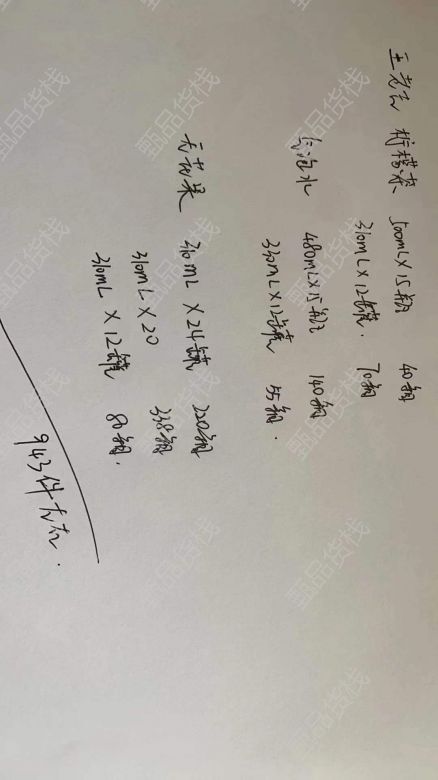 王老吉 柠檬茶 500mL×15瓶 40箱
310mL×12罐. 70箱
气泡水 480mL×15瓶 140箱
330mL×12罐 55箱.
无花果 310mL×24罐 220箱
310mL×20 338箱
310mL×12罐 80箱.
943件左右.
甄品货栈